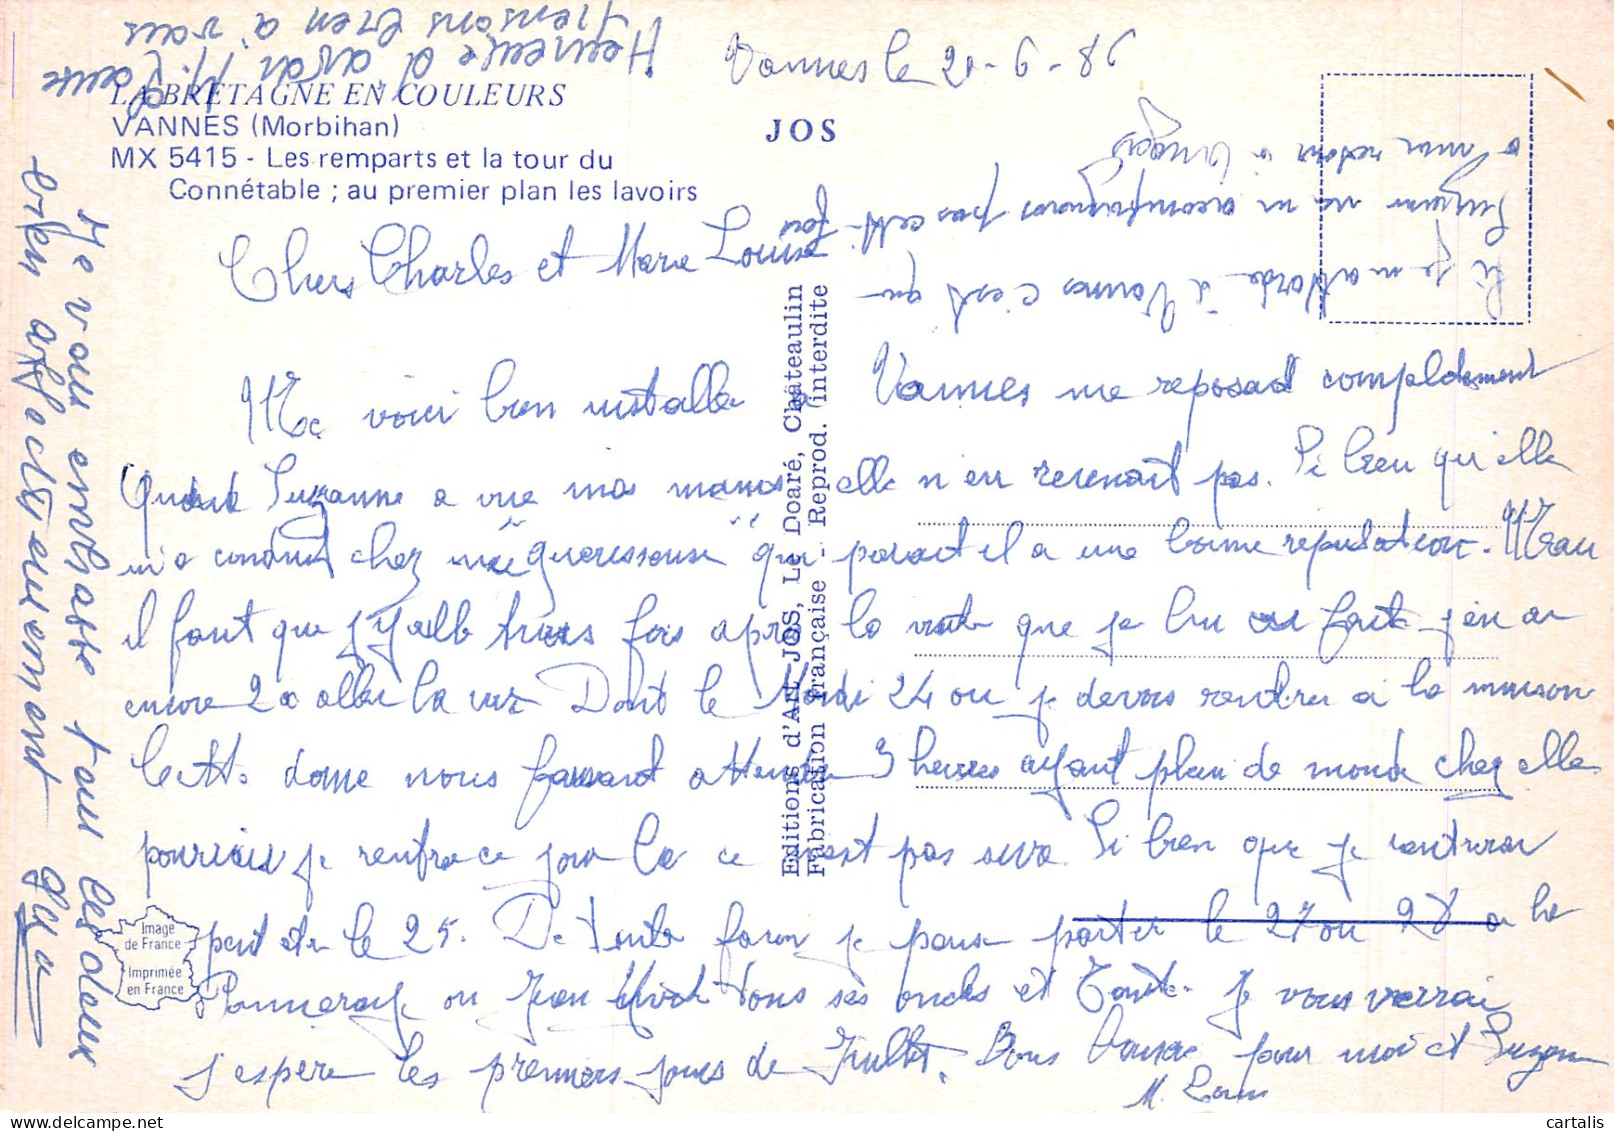 Heureuse d'avoir M. Louise
Pensons bien à vous
Vannes le 21-6-86
LA BRETAGNE EN COULEURS
VANNES (Morbihan)
MX 5415 - Les remparts et la tour du
Connétable ; au premier plan les lavoirs
JOS
Si je m'attarde à Vannes c'est que
Suzanne ne m'accompagnera pas cette fois
à mon retour à
Chers Charles et Marie Louise
Me voici bien installée à Vannes me reposant complètement
Quand Suzanne a vue mes mains elle n'en revenait pas. Si bien qu'elle
m'a conduit chez une "guérisseuse" qui parait il a une bonne réputation. Mais
il faut que j'y aille trois fois après la visite que je lui ai faite j'en ai
encore 2 à aller la voir Dont le Mardi 24 ou je devais rentrer à la maison
Cette dame nous faisant attendre 3 heures ayant plein de monde chez elle
pourrais je rentrer ce jour là ce n'est pas sûre. Si bien que je rentrerai
peut être le 25. De toute façon je pense partir le 27 ou 28 à la
ou Jean dans ses et Tante. Je vous verrai
j'espère les premiers jours de Juillet. Bons baisers pour moi et Suzanne
M. Louise
Je vous embrasse tous les deux
bien affectueusement
Editions d'Art JOS, Le Doaré, Châteaulin
Fabrication Française - Reprod. interdite
Image
de France
Imprimée
en France
cartalis